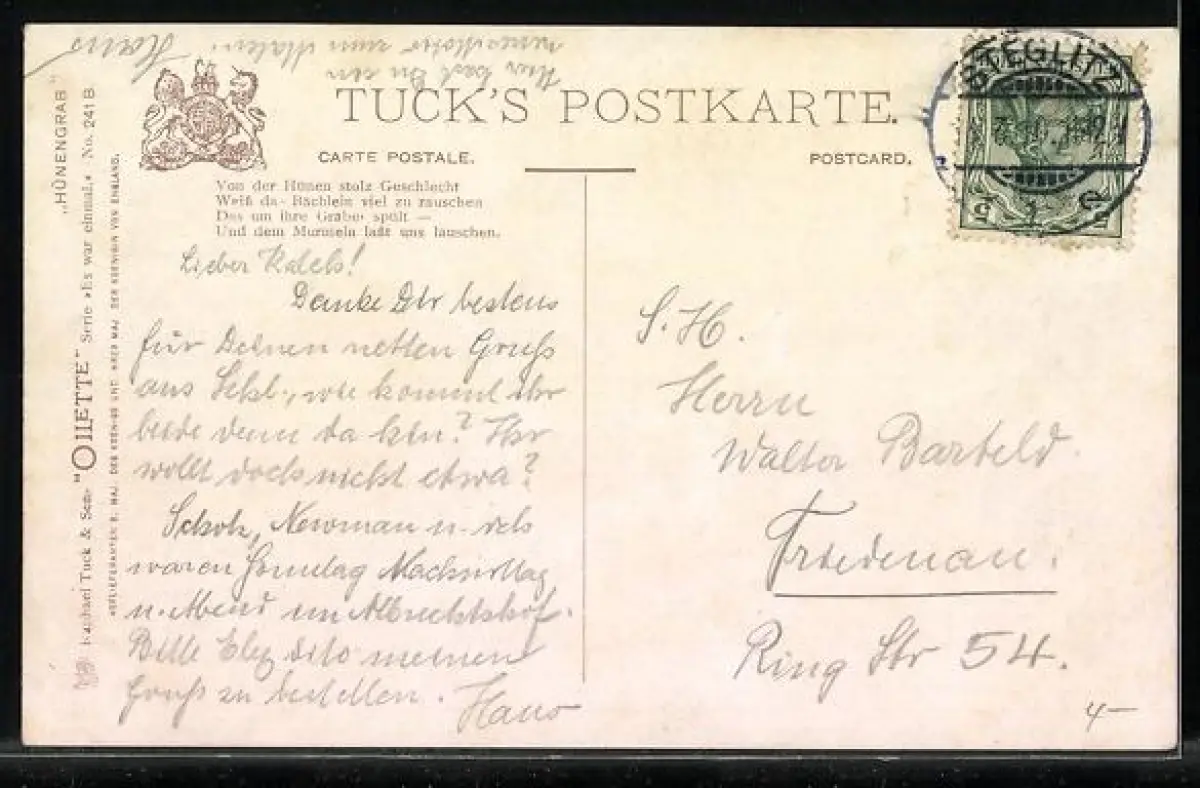 Hier hast Du ein
neues Motiv zum Malen!
Hans
TUCK'S POSTKARTE.
CARTE POSTALE.
POSTCARD.
STEGLITZ
Von der Hünen stolz Geschlecht
Weiß das Bächlein viel zu rauschen
Das um ihre Gräber spült —
Und dem Murmeln laßt uns lauschen.
„HÜNENGRAB"
Raphael Tuck & Sons "OILETTE" Serie »Es war einmal.« No. 241 B
HOFLIEFERANTEN S. MAJ. DES KOENIGS UND IHRER MAJ. DER KOENIGIN VON ENGLAND.
Lieber
Danke Dir bestens
für Deinen netten Gruß
aus wie kommt ihr
beide denn da hin? Ihr
wollt doch nicht etwa?
Scholz, Newman u. ich
waren Sonntag Nachmittag
u. Abend im Albrechtshof.
Bitte meinen
Gruß zu bestellen. Hans
S. H.
Herrn
Walter Barteld
Friedenau.
Ring Str 54.
4—